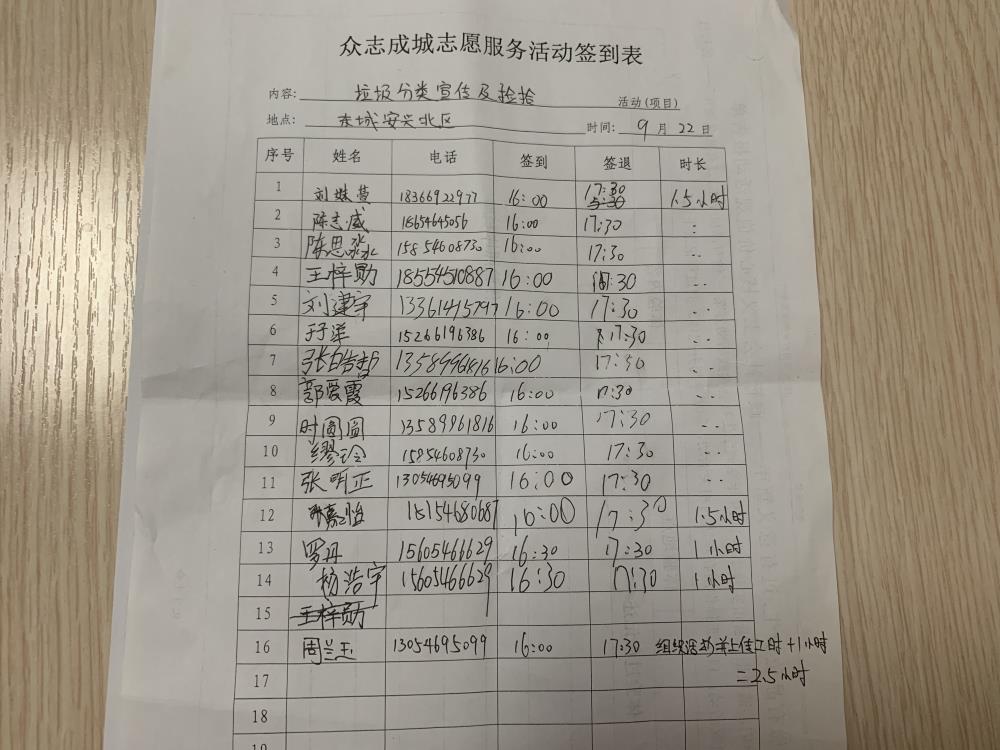 众志成城志愿服务活动签到表
内容: 垃圾分类宣传及捡拾 活动(项目)
地点: 东城安兴北区 时间: 9 月 22 日
序号 姓名 电话 签到 签退 时长
1 刘姝萱 18366922977 16:00 17:30 1.5小时
2 陈志威 18654645056 16:00 17:30 ..
3 陈思淼 15854608730 16:00 17:30 ..
4 王梓勋 18554510887 16:00 17:30 ..
5 刘建宇 13361415797 16:00 17:30 ..
6 于洋 15266196386 16:00 17:30 ..
7 张皓 13589961816 16:00 17:30 ..
8 郭爱霞 15266196386 16:00 17:30 ..
9 时圆圆 13589961816 16:00 17:30 ..
10 缪玲 15854608730 16:00 17:30 ..
11 张明正 13054695099 16:00 17:30 ..
12 嘉怡 18154680687 16:00 17:30 1.5小时
13 罗丹 15605466629 16:30 17:30 1小时
14 杨浩宇 15605466629 16:30 17:30 1小时
15 王梓勋
16 周兰玉 13054695099 16:00 17:30 组织活动并上传工时+1小时
17 =2.5小时
18
19